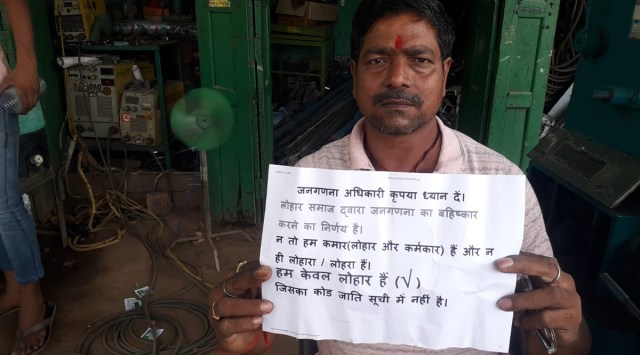 जनगणना अधिकारी कृपया ध्यान दें।
लोहार समाज द्वारा जनगणना का बहिष्कार
करने का निर्णय है।
न तो हम कमार(लोहार और कर्मकार) हैं और न
ही लोहारा / लोहरा हैं।
हम केवल लोहार हैं (√)
जिसका कोड जाति सूची में नहीं है।